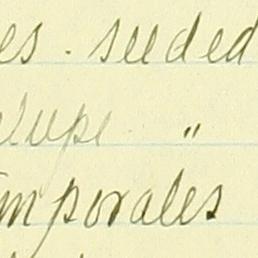 es. seeded
elupe "
mporales